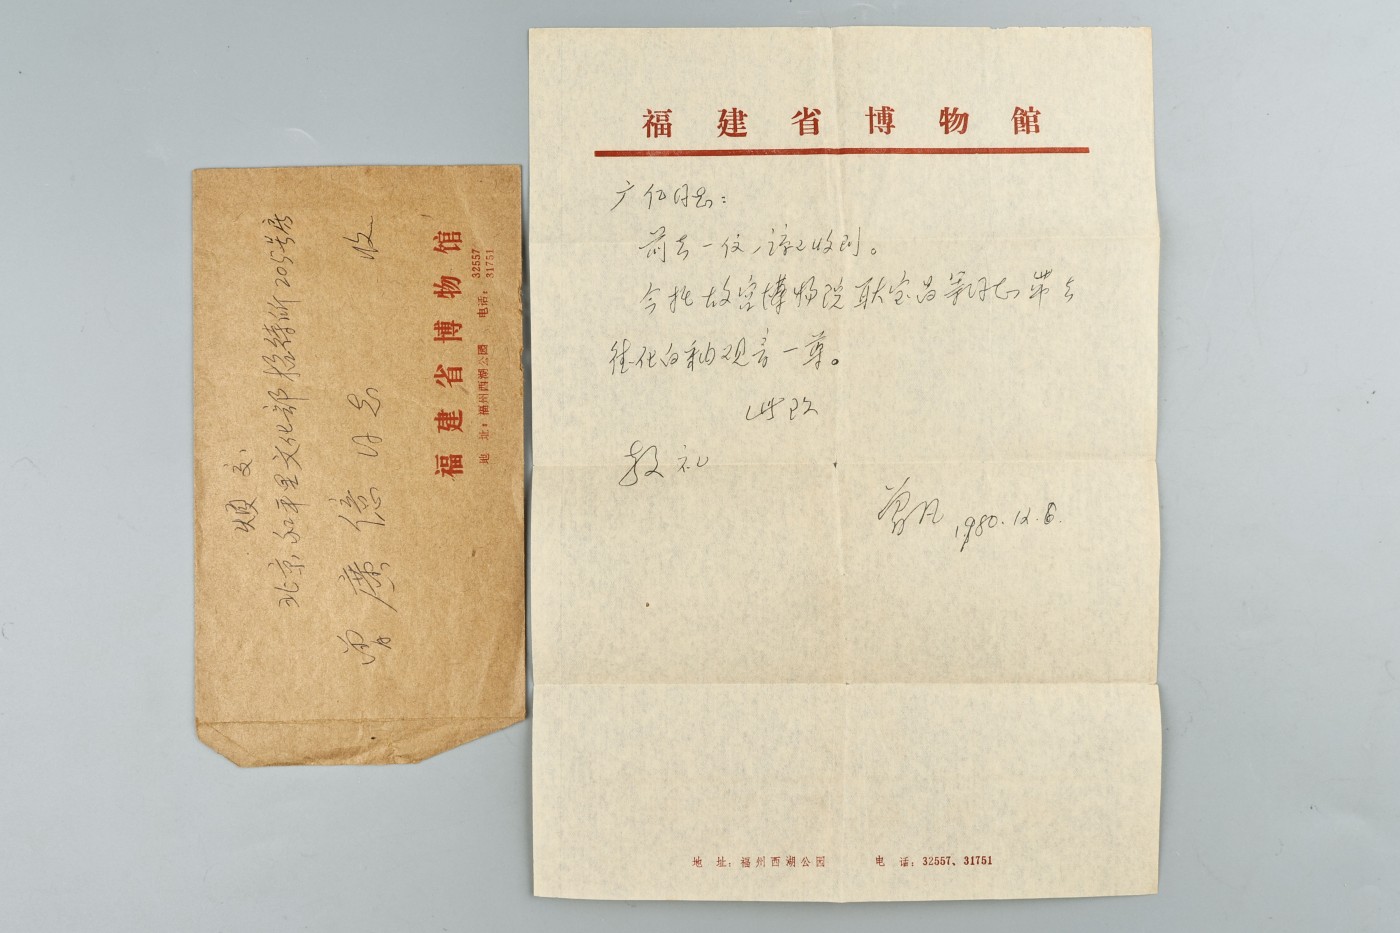 烦交
北京和平里文化部 招待所205号房
曾廣億同志 收
福建省博物館
地 址：福州西湖公園 电话：32557
31751
福建省博物館
广亿同志：
前去一信，谅已收到。
今托故宫博物院耿宝昌等同志带去
德化白釉观音一尊。
此致
敬礼
曾凡 1980.12.6.
地 址：福州西湖公园 电 话：32557、31751